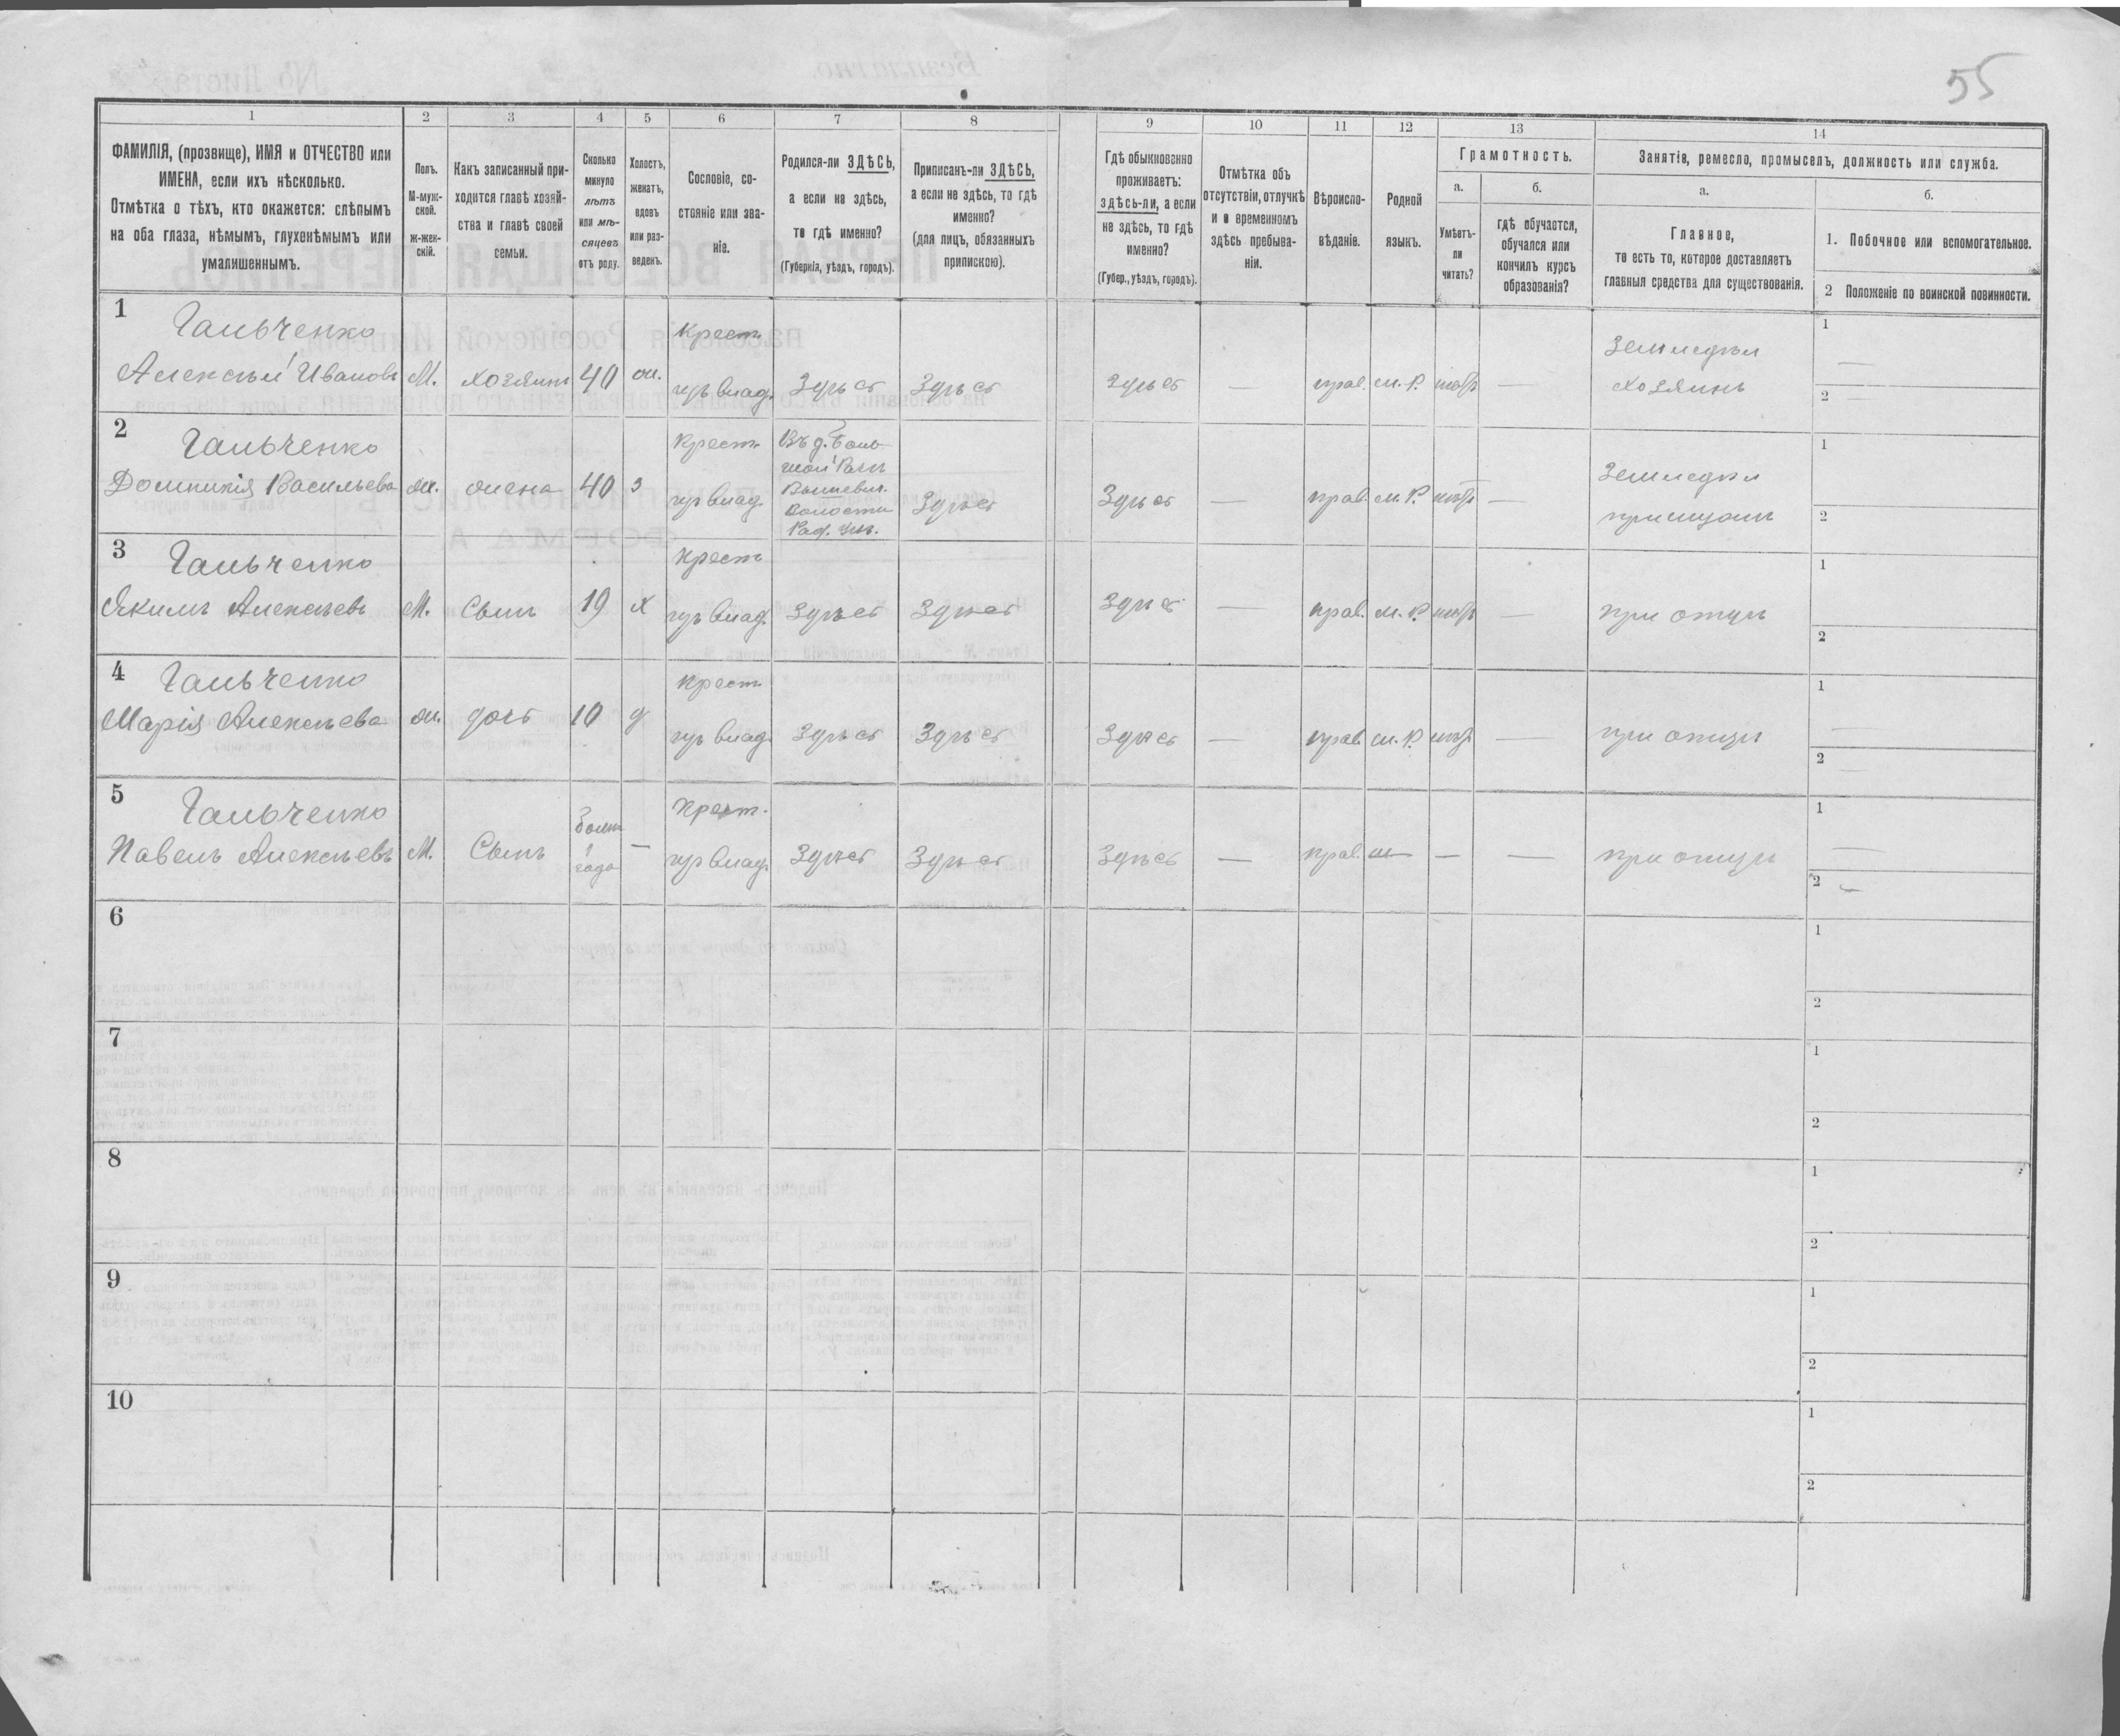 55
1 2 3 4 5 6 7 8 9 10 11 12 13 14
ФАМИЛІЯ, (прозвище), ИМЯ и ОТЧЕСТВО или
ИМЕНА, если ихъ нѣсколько.
Отмѣтка о тѣхъ, кто окажется: слѣпымъ
на оба глаза, нѣмымъ, глухонѣмымъ или
умалишеннымъ.
Полъ.
М-муж-
ской.
ж-жен-
скій.
Какъ записанный при-
ходится главѣ хозяй-
ства и главѣ своей
семьи.
Сколько
минуло
лѣтъ
или мѣ-
сяцевъ
отъ роду.
Холостъ,
женатъ,
вдовъ
или раз-
веденъ.
Сословіе, со-
стояніе или зва-
ніе.
Родился-ли ЗДѢСЬ,
а если не здѣсь,
то гдѣ именно?
(Губернія, уѣздъ, городъ).
Приписанъ-ли ЗДѢСЬ,
а если не здѣсь, то гдѣ
именно?
(для лицъ, обязанныхъ
припискою).
Гдѣ обыкновенно
проживаетъ:
здѣсь-ли, а если
не здѣсь, то гдѣ
именно?
(Губер., уѣздъ, городъ).
Отмѣтка объ
отсутствіи, отлучкѣ
и о временномъ
здѣсь пребыва-
ніи.
Вѣроиспо-
вѣданіе.
Родной
языкъ.
Грамотность.
а.
Умѣетъ-
ли
читать?
б.
гдѣ обучается,
обучался или
кончилъ курсъ
образованія?
Занятіе, ремесло, промыселъ, должность или служба.
а.
Главное,
то есть то, которое доставляетъ
главныя средства для существованія.
б.
1. Побочное или вспомогательное.
2 Положеніе по воинской повинности.
1 Гальченко Крест. Земледѣл 1
Алексѣй Ивановъ М. хозяинъ 40 ж. гр. влад. Здѣсь Здѣсь Здѣсь — прав. м. Р. нѣтъ — хозяинъ 2
2 Гальченко Крест. Въ д. Боль- 1
шой Рачѣ Земледѣл
Домникія Васильева ж. жена 40 з гр. влад. Здѣсь Здѣсь — прав. м. Р. нѣтъ — при мужѣ 2
Волости
Рад. уѣз.
3 Гальченко Крест. 1
Якимъ Алексѣевъ М. Сынъ 19 х гр. влад. Здѣсь Здѣсь Здѣсь — прав. м. Р. нѣтъ — при отцѣ 2
4 Гальченко Крест. 1
Марія Алексѣева ж. дочь 10 д гр. влад. Здѣсь Здѣсь Здѣсь — прав. м. Р. нѣтъ — при отцѣ 2
5 Гальченко Крест. 1
Павелъ Алексѣевъ М. Сынъ 1 года — гр. влад. Здѣсь Здѣсь Здѣсь — прав. — — при отцѣ 2
6 1
2
7 1
2
8 1
2
9 1
2
10 1
2